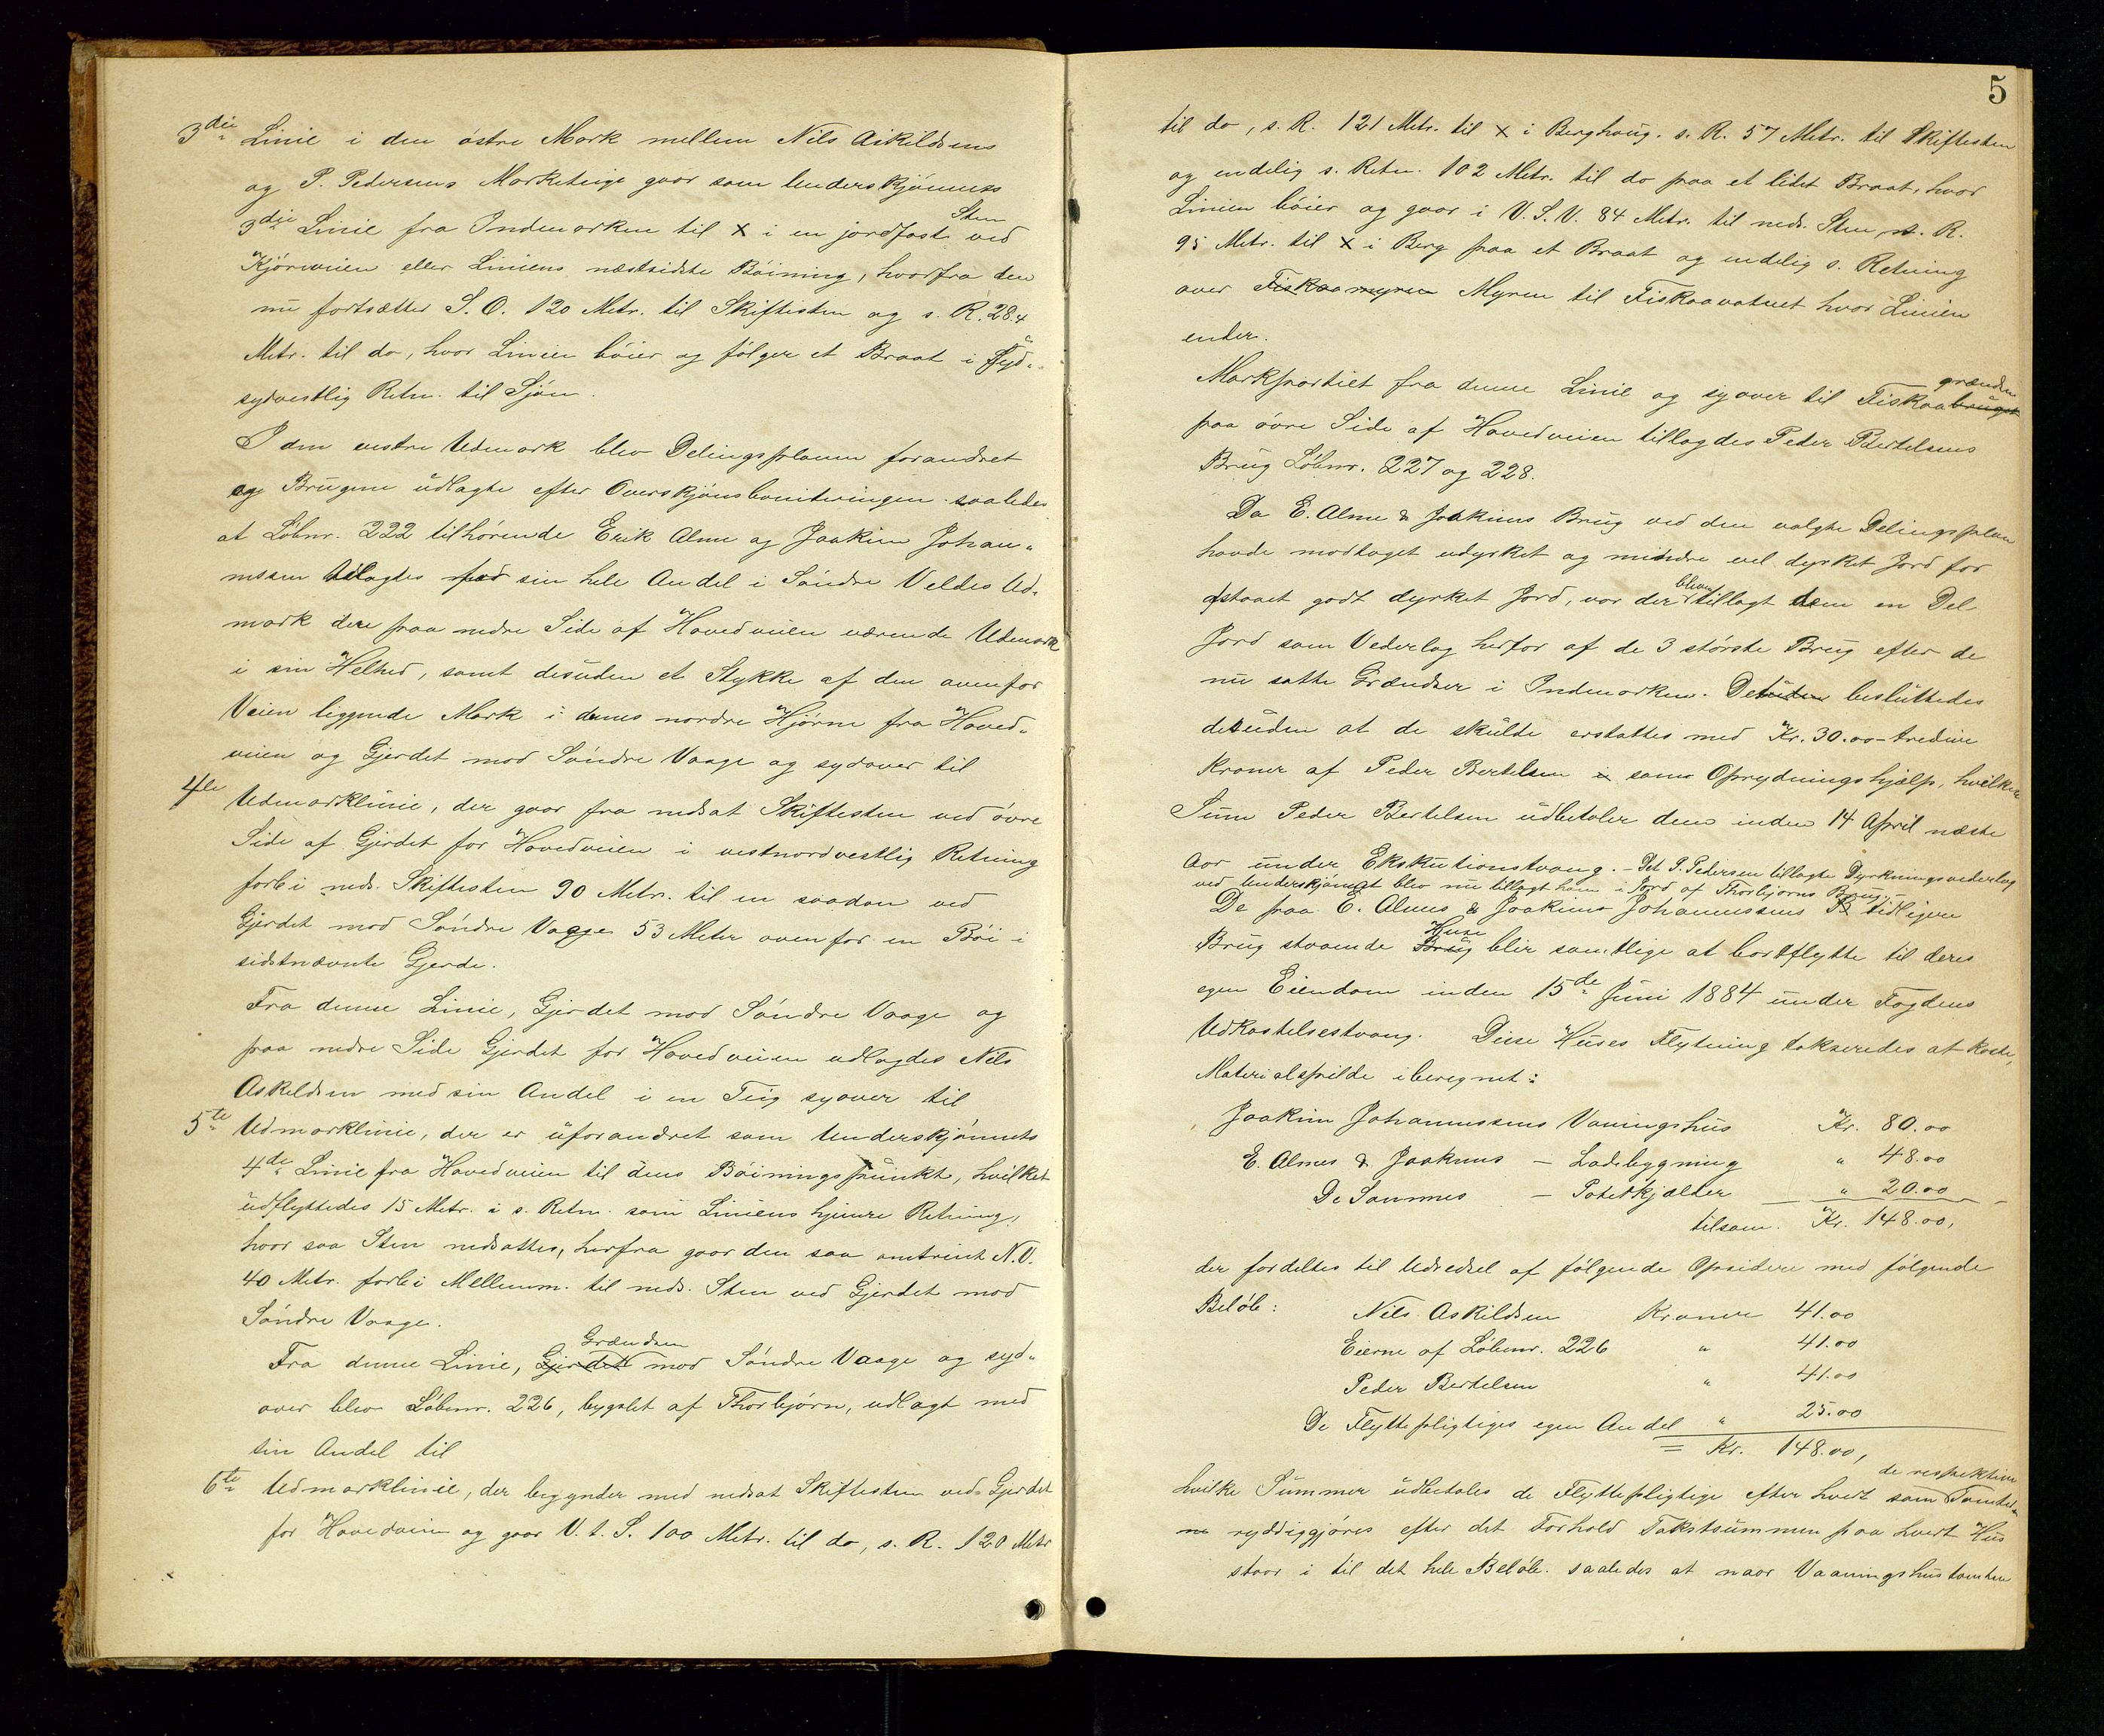 3die Linie i den østre Mark mellem Nils Askildsens
og P. Pedersens Marketeige gaar som Underskjønnets
3die Linie fra Indmarken til x i en jordfast Sten ved
Kjøreveien eller Liniens næstsidste Bøining, hvorfra den
nu fortsætter S. O. 120 Metr. til Skiftesten og s. R. 28.4
Metr. til do, hvor Linien bøier og følger et Braat i Syd-
sydvestlig Retn. til Sjøn.
I den vestre Udmark blev Delingsplanen forandret
og Brugene udlagte efter Overskjønsboniteringen saaledes
at Løbnr. 222 tilhørende Erik Alme og Joakim Johan-
nessen tillagdes for sin hele Andel i Søndre Veldes Ud-
mark den paa nedre Side af Hovedveien værende Udmark
i sin Helhed, samt desuden et Stykke af den ovenfor
Veien liggende Mark i dennes nordre Hjørne fra Hoved-
veien og Gjerdet mod Søndre Vaage og sydover til
4de Udmarklinie, der gaar fra nedsat Skiftesten ved øvre
Side af Gjerdet for Hovedveien i vestnordvestlig Retning
forbi neds. Skiftesten 90 Metr. til en saadan ved
Gjerdet mod Søndre Vaage 53 Meter ovenfor en Bøi i
sidstnævnte Gjerde.
Fra denne Linie, Gjerdet mod Søndre Vaage og
paa nedre Side Gjerdet for Hovedveien udlagdes Nils
Askildsen med sin Andel i en Teig syover til
5te Udmarklinie, der er uforandret som Underskjønnets
4de Linie fra Hovedveien til dens Bøiningspunkt, hvilket
udflyttedes 15 Metr. i s. Retn. som Liniens hjemre Retning,
hvor saa Sten nedsattes, herfra gaar den saa omtrent N.V.
40 Metr. forbi Mellemm. til neds. Sten ved Gjerdet mod
Søndre Vaage.
Fra denne Linie, Gjerdet Grændsen mod Søndre Vaage og syd-
over blev Løbenr. 226, bygslet af Thorbjørn, udlagt med
sin Andel til
6te Udmarklinie, der begynder med nedsat Skiftesten ved Gjerdet
for Hovedveien og gaar V. t. S. 100 Metr. til do, s. R. 120 Metr
5
til do, s. R. 121 Metr. til x i Berghaug. s. R. 57 Metr. til Skiftesten
og endelig s. Retn. 102 Metr. til do paa et lidet Braat, hvor
Linien bøier og gaar i V. S. V. 84 Metr. til neds. Sten s. R.
95 Metr. til x i Berg paa et Braat og endelig s. Retning
over Fiskaamyren Myren til Fiskaavatnet hvor Linien
ender.
Markpartiet fra denne Linie og syover til Fiskaabruget grændsen
paa øvre Side af Hovedveien tillagdes Peder Bertelsens
Brug Løbnr. 227 og 228.
Da E. Alme & Joakims Brug ved den valgte Delingsplan
havde modtaget udyrket og mindre vel dyrket Jord for
afstaaet godt dyrket Jord, var der bleven tillagt dem en Del
Jord som Vederlag herfor af de 3 største Brug efter de
nu satte Grændser i Indmarken. Desuden besluttedes
desuden at de skulde erstattes med Kr. 30.00 - tredive
Kroner af Peder Bertelsen i som Oprydningshjælp, hvilken
Sum Peder Bertelsen udbetaler dem inden 14 April næste
Aar under Eksekutionstvang. - Det P. Pedersen tillagte Dyrkningsvederlag
ved Underskjønnet blev nu tillagt ham i Jord af Thorbjørns Brug.
De paa E. Almes & Joakim Johannessens tidligere
Brug staaende Brug Huse blir samtlige at bortflytte til deres
egen Eiendom inden 15de Juni 1884 under Fogdens
Udkastelsestvang. Disse Huses Flytning takseredes at koste,
Materialspilde iberegnet:
Joakim Johannessens Vaaningshus Kr. 80.00
E. Almes & Joakims - Ladebygning " 48.00
De Sammes - Potetkjælder " 20.00
tilsam. Kr. 148.00,
der fordeltes til Udredsel af følgende Opsidere med følgende
Beløb: Nils Askildsen Kroner 41.00
Eierne af Løbenr. 226 " 41.00
Peder Bertelsen " 41.00
De Flyttepligtiges egen Andel " 25.00
= Kr. 148.00,
hvilke Summer udbetales de Flyttepligtige efter hvert som de respektive Tomter
ne ryddiggjøres efter det Forhold Takstsummen paa hvert Hus
staar i til det hele Beløb. saaledes at naar Vaaningshustomten